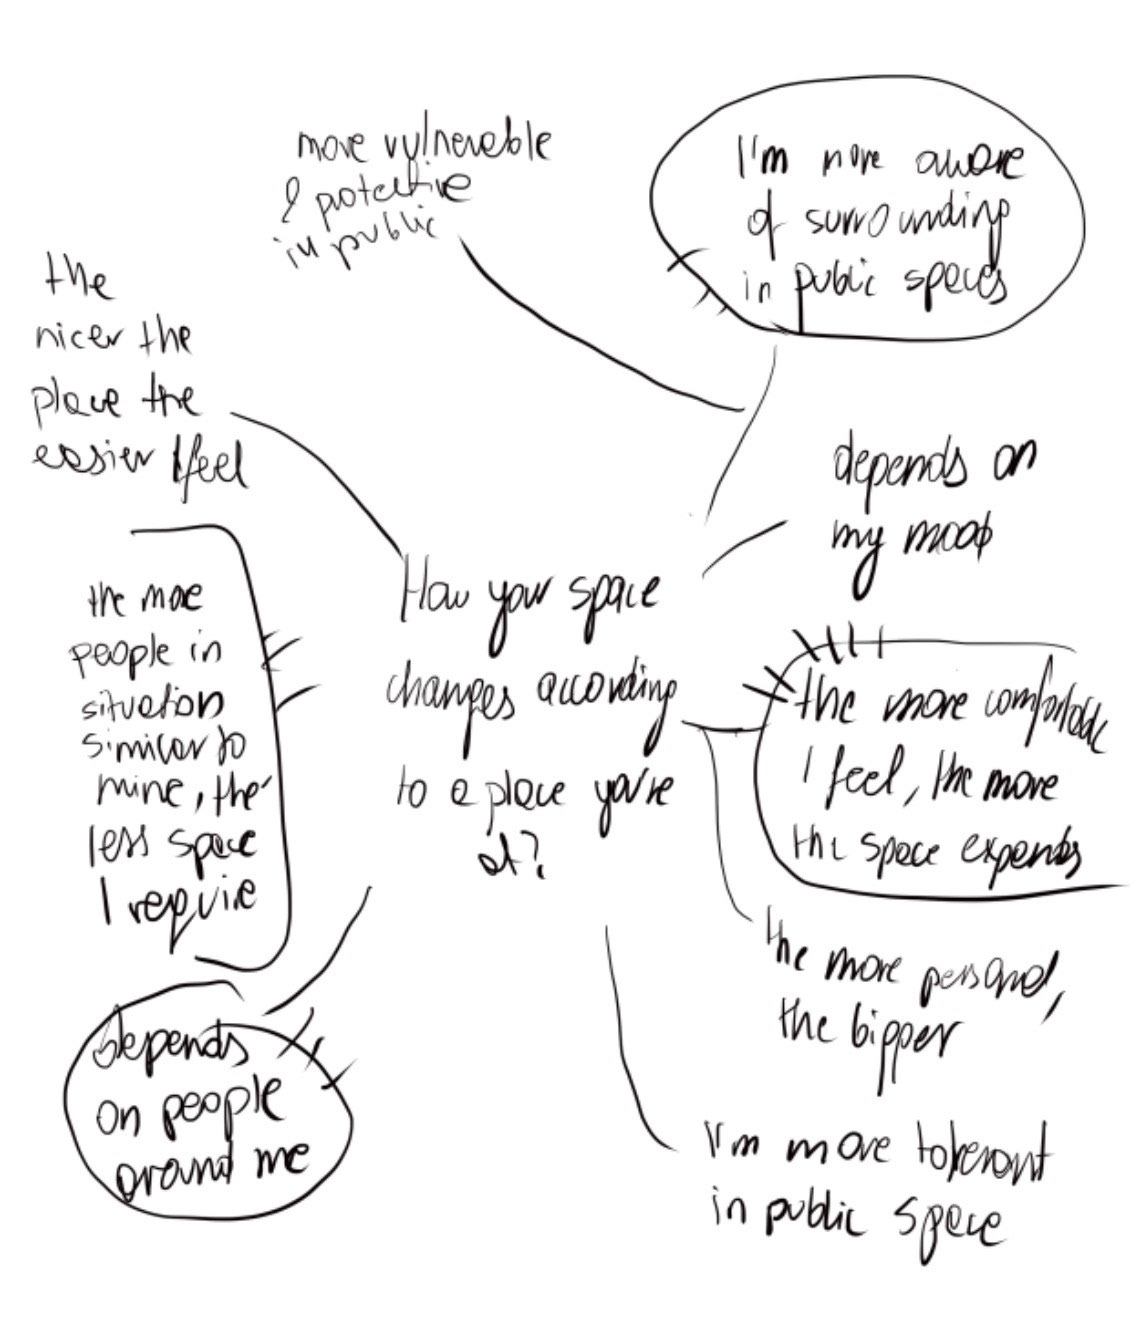 more vulnerable
& protective
in public
I'm more aware
of surrounding
in public spaces
the
nicer the
place the
easier I feel
depends on
my mood
the more
people in
situation
similar to
mine, the
less space
I require
How your space
changes according
to a place you're
at?
the more comfortable
I feel, the more
the space expends
the more personal,
the bigger
depends
on people
around me
I'm more tolerant
in public space